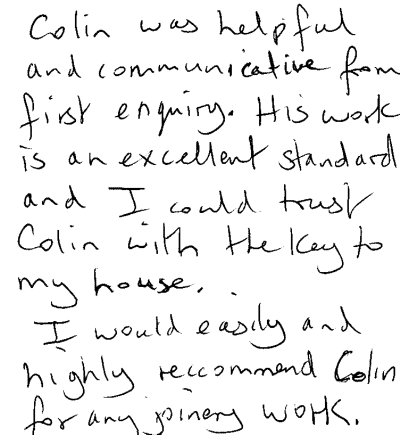 Colin was helpful
and communicative from
first enquiry. His work
is an excellent standard
and I could trust
Colin with the key to
my house.
I would easily and
highly reccommend Colin
for any joinery work.